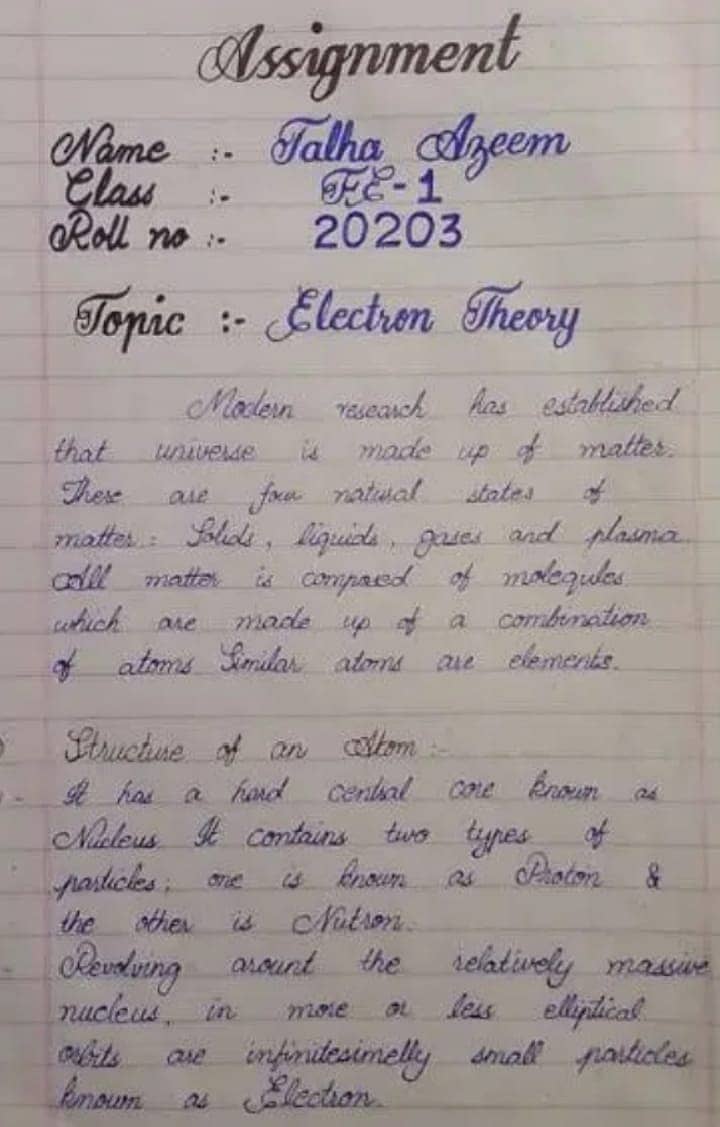 Assignment
Name :- Talha Azeem
Class :- FE-1
Roll no :- 20203
Topic :- Electron Theory
Modern research has established
that universe is made up of matter.
There are four natural states of
matter : Solids, liquids, gases and plasma.
All matter is composed of molequles
which are made up of a combination
of atoms Similar atoms are elements.
Structure of an Atom :-
It has a hard central core known as
Nucleus It contains two types of
particles; one is known as Proton &
the other is Nutron.
Revolving arount the relatively massive
nucleus, in more or less elliptical
orbits are infinitesimelly small particles
known as Electron.